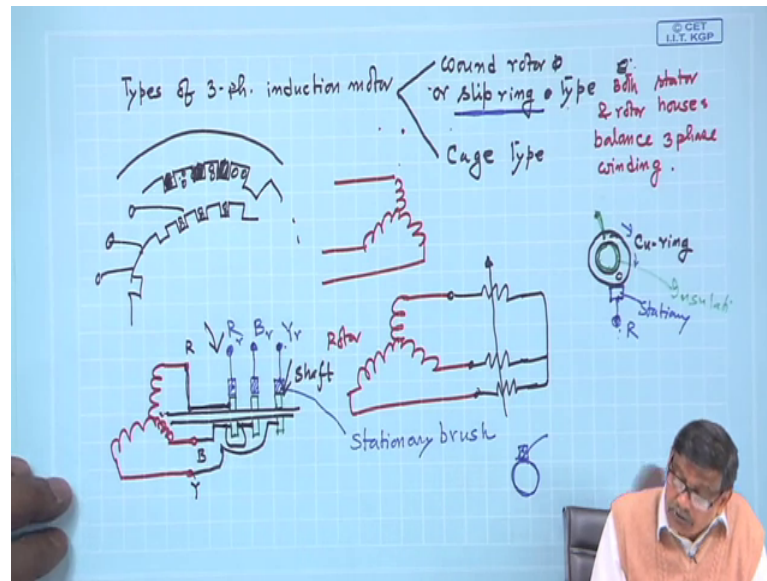 © CET
I.I.T. KGP
Types of 3-ph. induction motor
Wound rotor
or slip ring Type
Cage Type
Both stator
& rotor houses
balance 3 phase
winding.
Cu-ring
Insulati
Stationary
R
Rotor
R
Rr Br Yr
Shaft
Stationary brush
B
Y